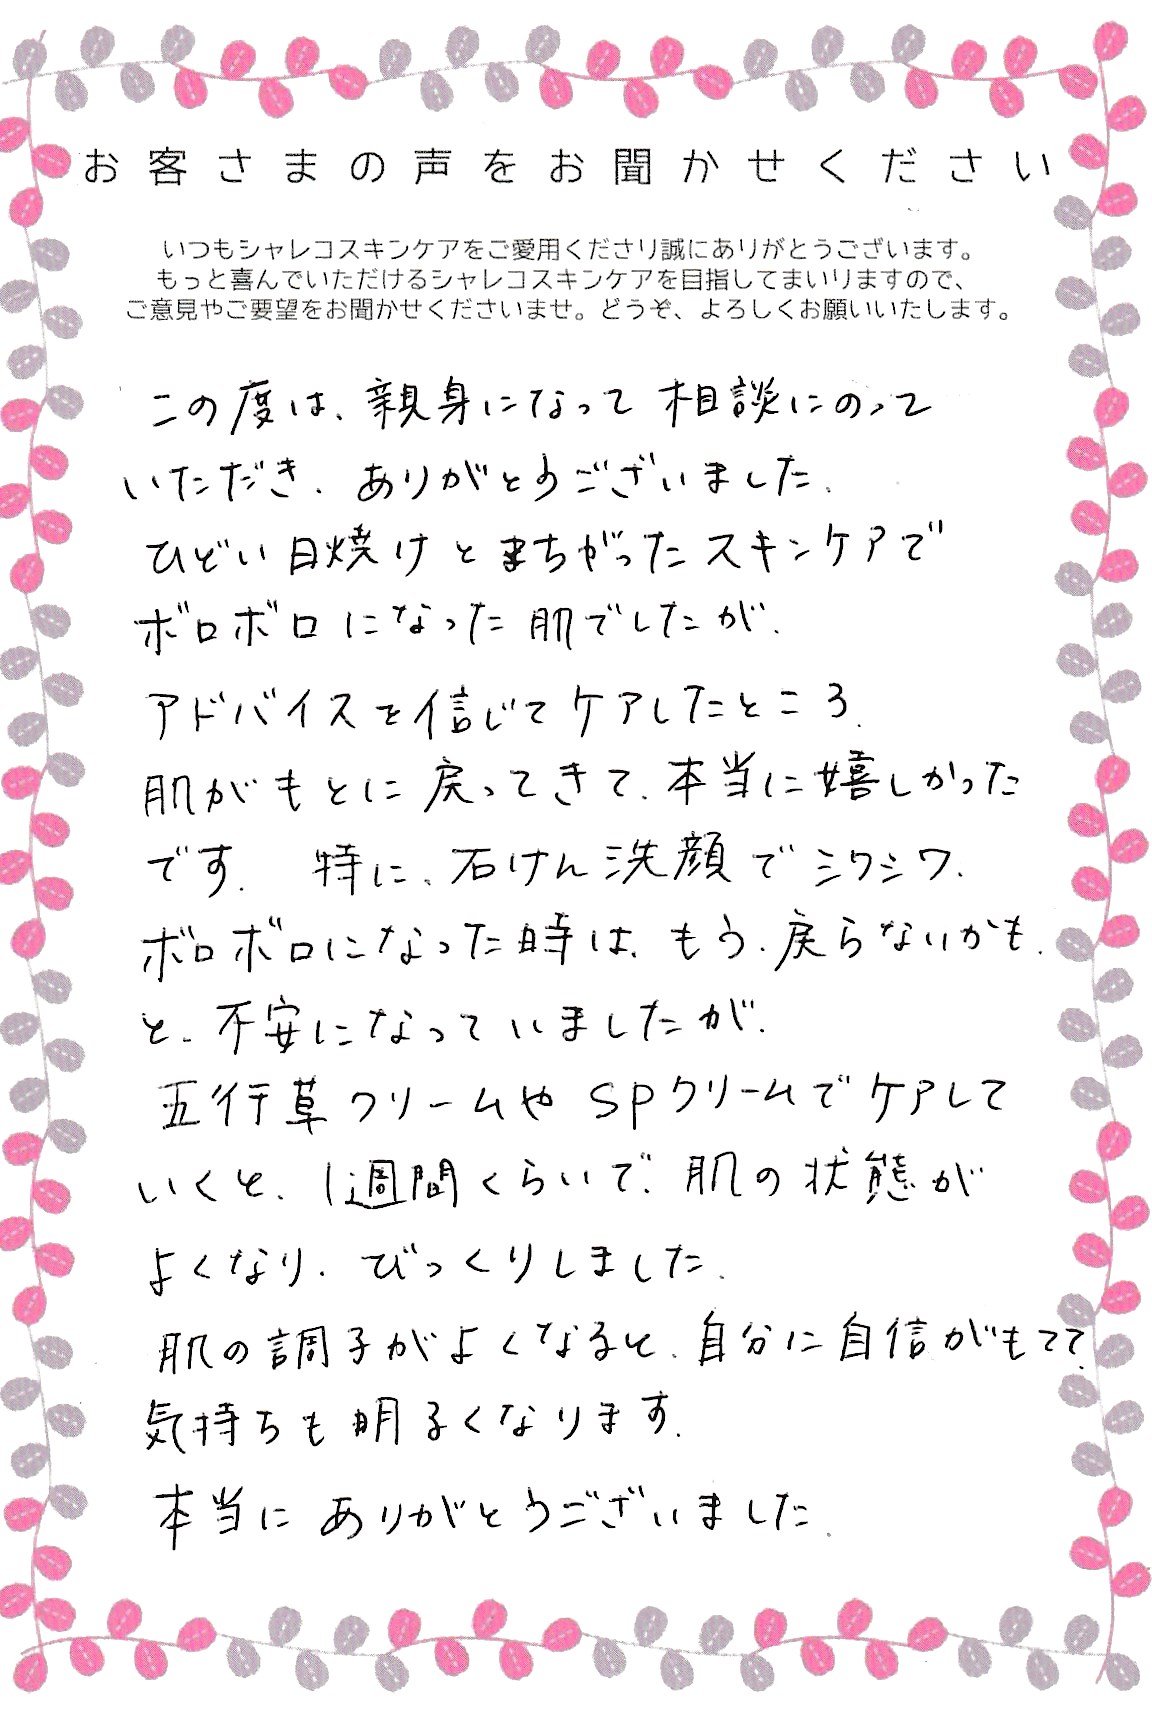 お客さまの声をお聞かせください
いつもシャレコスキンケアをご愛用くださり誠にありがとうございます。
もっと喜んでいただけるシャレコスキンケアを目指してまいりますので、
ご意見やご要望をお聞かせくださいませ。どうぞ、よろしくお願いいたします。
この度は、親身になって相談にのって
いただき、ありがとうございました。
ひどい日焼けとまちがったスキンケアで
ボロボロになった肌でしたが、
アドバイスを信じてケアしたところ、
肌がもとに戻ってきて、本当に嬉しかった
です。 特に、石けん洗顔でシワシワ、
ボロボロになった時は、もう、戻らないかも、
と、不安になっていましたが、
五行草クリームやSPクリームでケアして
いくと、1週間くらいで、肌の状態が
よくなり、びっくりしました。
肌の調子がよくなると、自分に自信がもてて、
気持ちも明るくなります。
本当にありがとうございました。